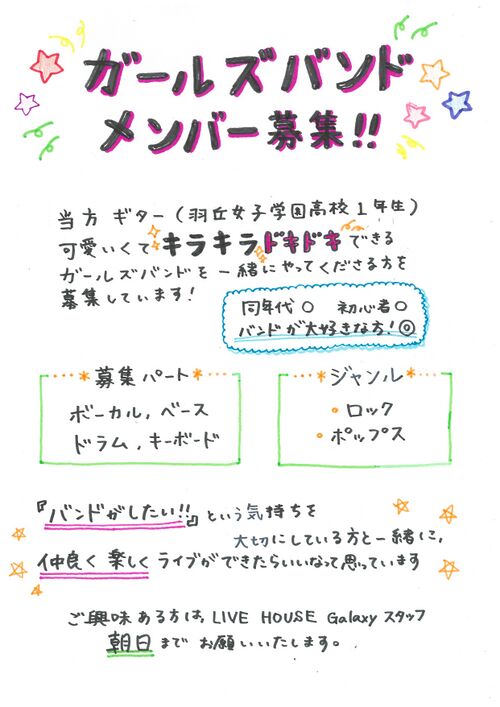 ガールズバンド
メンバー募集!!
当方 ギター(羽丘女子学園高校1年生)
可愛いくてキラキラドキドキできる
ガールズバンドを一緒にやってくださる方を
募集しています!
同年代○ 初心者○
バンドが大好きな方!◎
募集パート
ボーカル、ベース
ドラム、キーボード
ジャンル
ロック
ポップス
『バンドがしたい!!』という気持ちを
大切にしている方と一緒に、
仲良く楽しくライブができたらいいなって思っています
ご興味ある方は、LIVE HOUSE Galaxy スタッフ
朝日までお願いいたします。